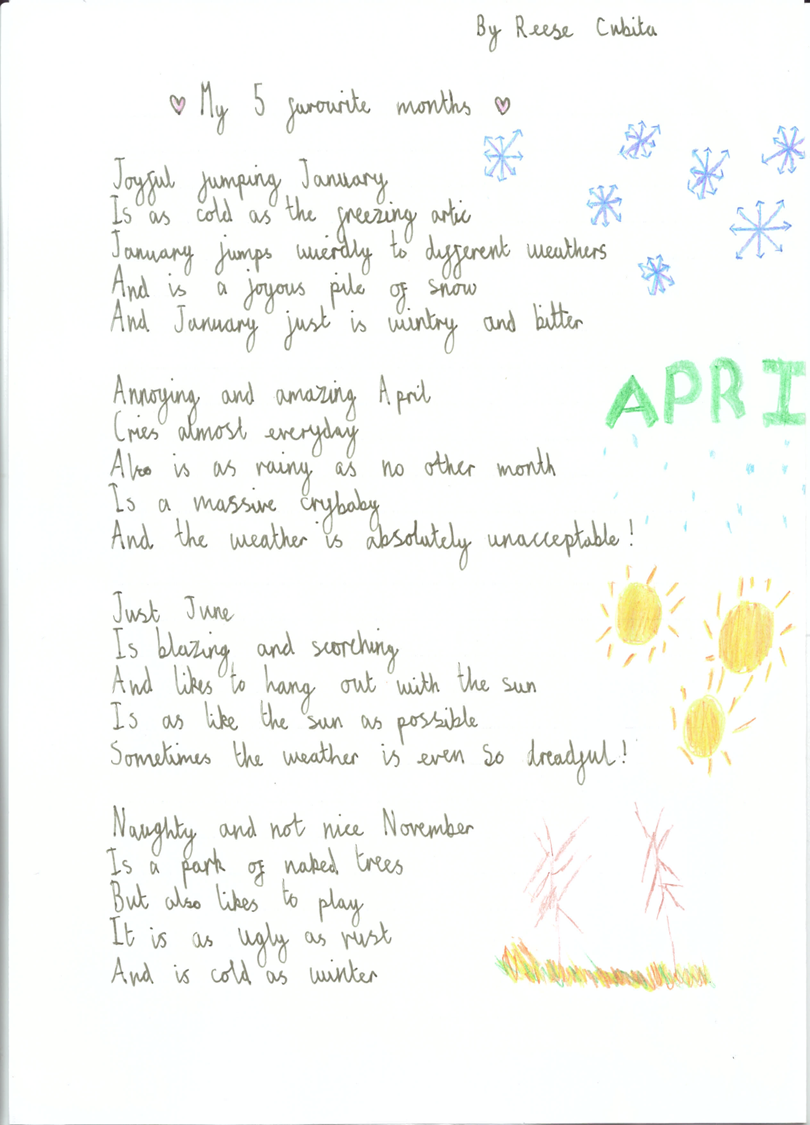 By Reese Cubita
My 5 favourite months
Joyful jumping January
Is as cold as the freezing artic
January jumps wierdly to different weathers
And is a joyous pile of snow
And January just is wintry and bitter
Annoying and amazing April
Cries almost everyday
Also is as rainy as no other month
Is a massive crybaby
And the weather is absolutely unacceptable!
APRI
Just June
Is blazing and scorching
And likes to hang out with the sun
Is as like the sun as possible
Sometimes the weather is even so dreadful!
Naughty and not nice November
Is a park of naked trees
But also likes to play
It is as ugly as rust
And is cold as winter